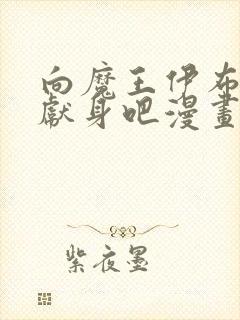 向魔王伊布
獻身吧漫畫
紫夜墨